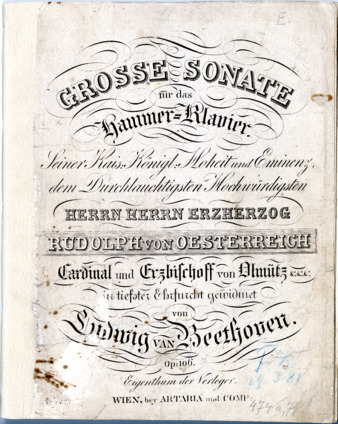 GROSSE SONATE
für das
Hammer=Klavier.
Seiner Kais. Königl. Hoheit und Eminenz,
dem Durchlauchtigsten Hochwürdigsten
HERRN HERRN ERZHERZOG
RUDOLPH VON OESTERREICH
Cardinal und Erzbischoff von Olmütz &c.&c.
in tiefster Ehrfurcht gewidmet
von
Ludwig VAN Beethoven.
Op: 106.
Eigenthum der Verleger.
WIEN, bey ARTARIA und COMP: